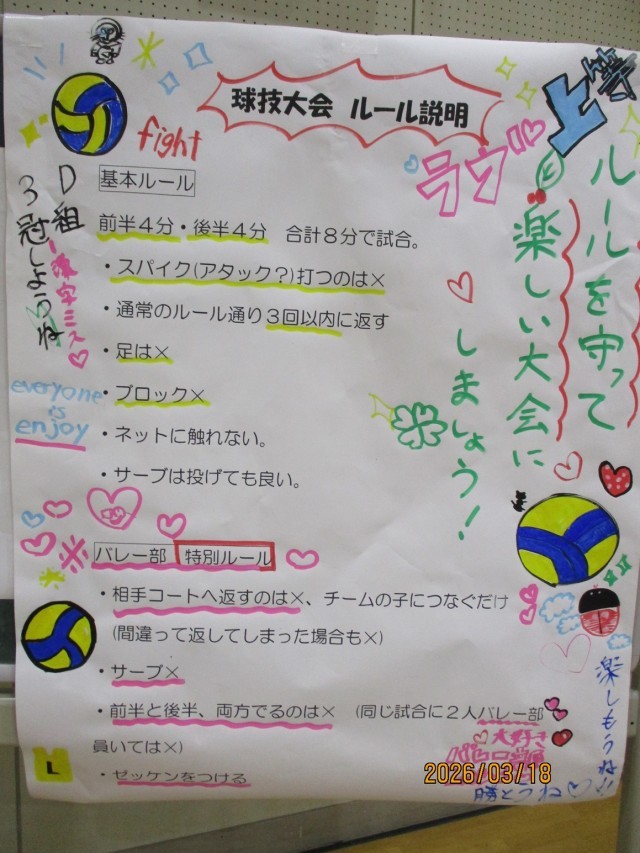 球技大会 ルール説明
上等
ラヴ
fight
ルールを守って
楽しい大会に
しましょう!
D組
3冠しようね
漢字ミス♡
everyone
is
enjoy
基本ルール
前半4分・後半4分 合計8分で試合。
・スパイク(アタック?)打つのは×
・通常のルール通り3回以内に返す
・足は×
・ブロック×
・ネットに触れない。
・サーブは投げても良い。
※ バレー部 特別ルール
・相手コートへ返すのは×、チームの子につなぐだけ
(間違って返してしまった場合も×)
・サーブ×
・前半と後半、両方でるのは× (同じ試合に2人バレー部
員いては×)
・ゼッケンをつける
L
楽しもうね!!
大好き
勝とうね♡
2026/03/18